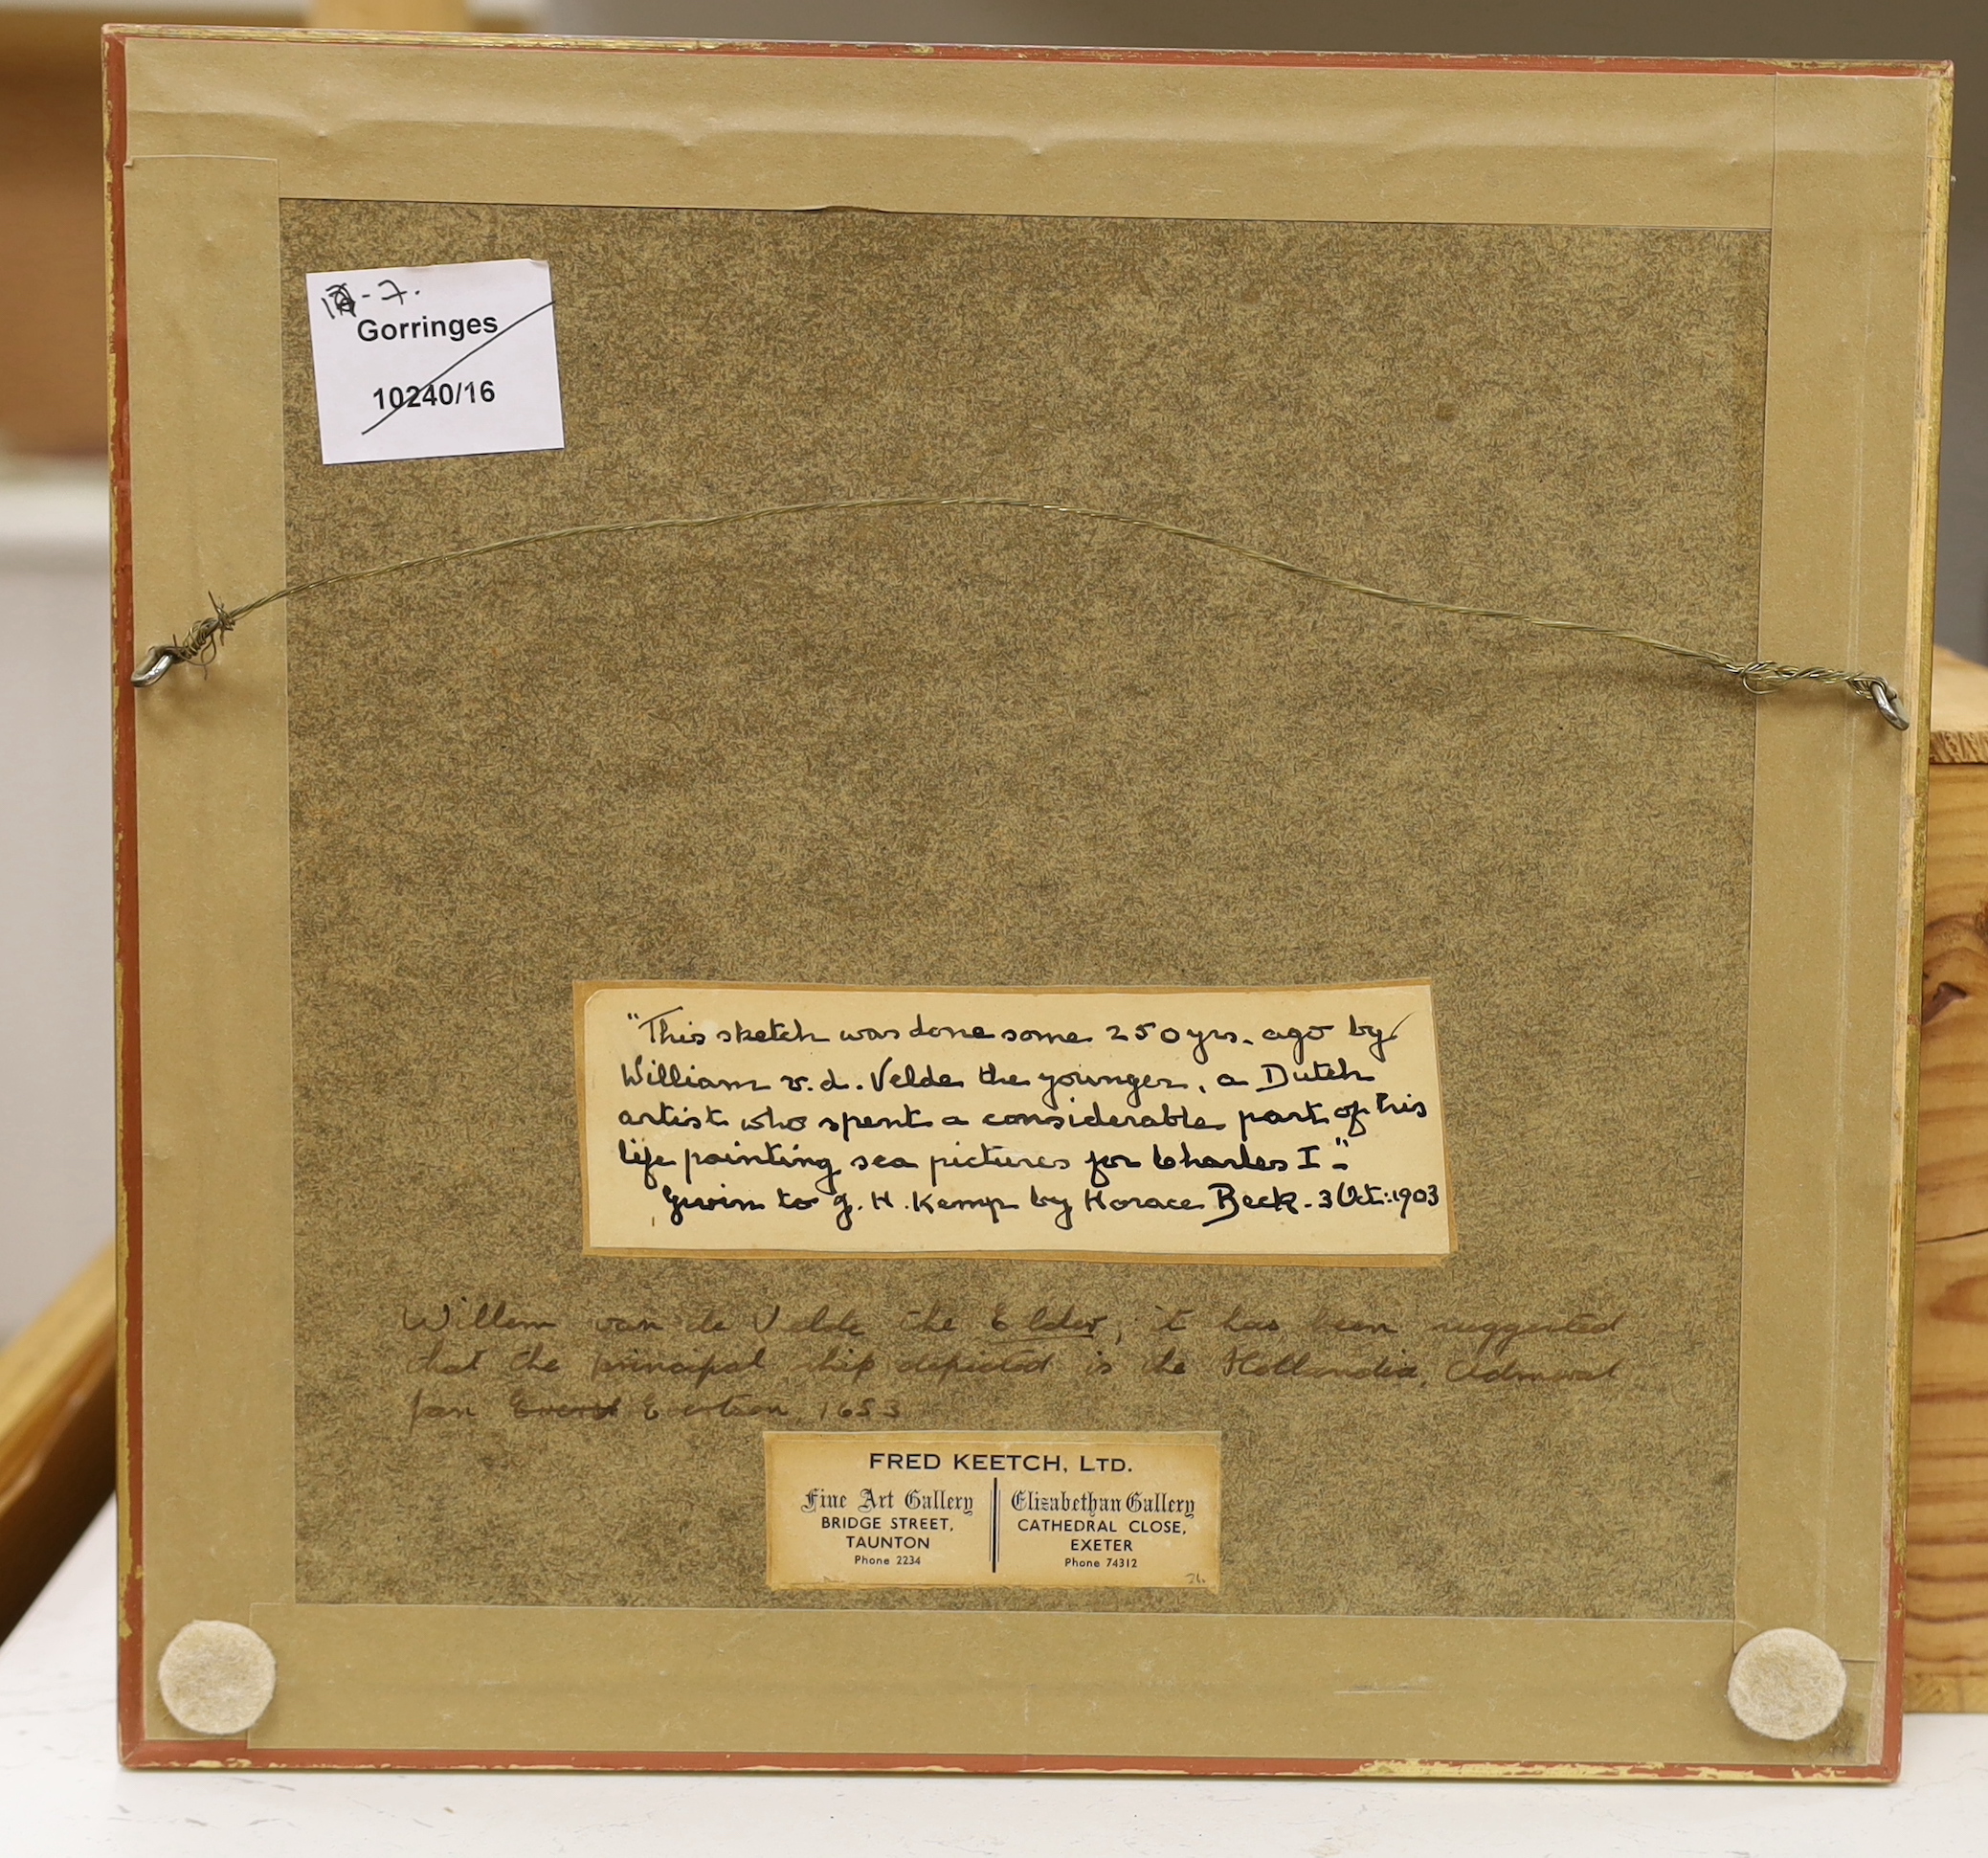 - 7.
Gorringes
10240/16
"This sketch was done some 250 yrs. ago by
William v. d. Velde the younger, a Dutch
artist who spent a considerable part of his
life painting sea pictures for Charles I."
Given to G. H. Kemp by Horace Beck - 3 Oct: 1903
Willem van de Velde the Elder, it has been suggested
that the principal ship depicted is the Hollandia, Admiral
Jan Evertsen, 1653
FRED KEETCH, LTD.
Fine Art Gallery
BRIDGE STREET,
TAUNTON
Phone 2234
Elizabethan Gallery
CATHEDRAL CLOSE,
EXETER
Phone 74312